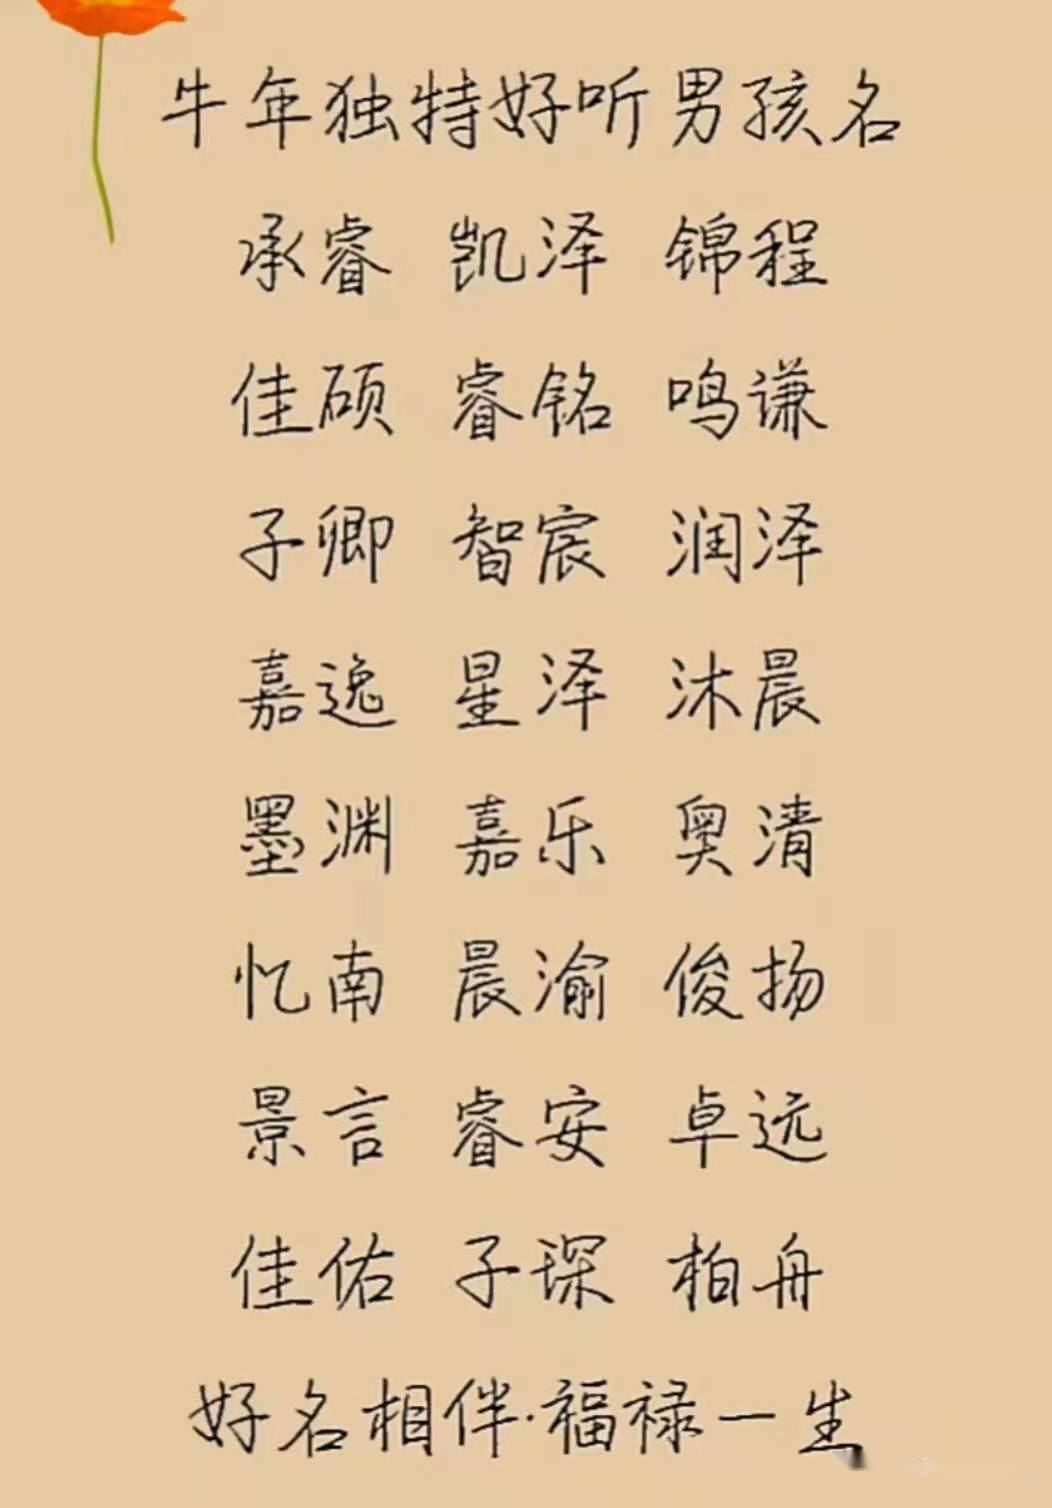 牛年独特好听男孩名
承睿 凯泽 锦程
佳硕 睿铭 鸣谦
子卿 智宸 润泽
嘉逸 星泽 沐晨
墨渊 嘉乐 奥清
忆南 晨渝 俊扬
景言 睿安 卓远
佳佑 子琛 柏舟
好名相伴·福禄一生